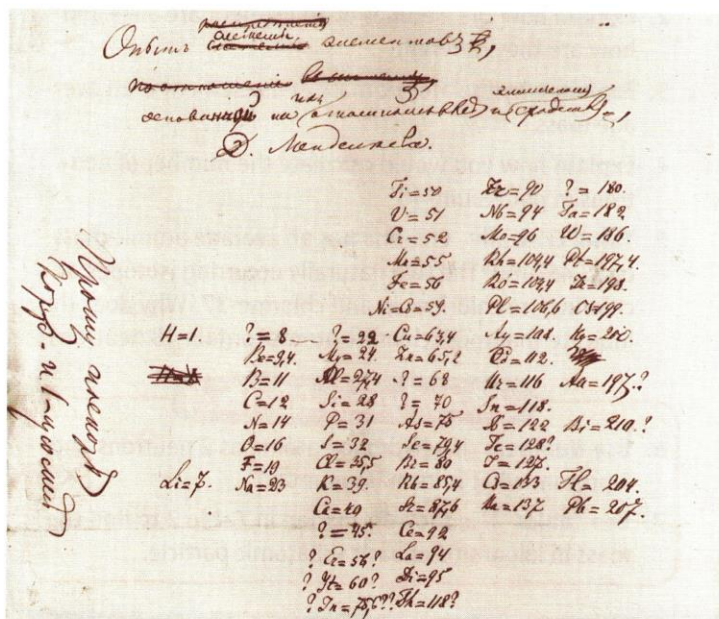 Опытъ системы элементовъ,
основанной на ихъ атомномъ вѣсѣ и химическомъ сходствѣ,
Д. Менделѣева.
Ti=50 Zr=90 ?=180.
V=51 Nb=94 Ta=182
Cr=52 Mo=96 W=186.
Mn=55 Rh=104,4 Pt=197,4
Fe=56 Ru=104,4 Ir=198.
Ni=Co=59. Pl=106,6 Os=199.
H=1. ?=8. ?=22 Cu=63,4 Ag=108. Hg=200.
Be=9,4. Mg=24. Zn=65,2 Cd=112.
B=11 Al=27,4 ?=68 Ur=116 Au=197.?
C=12 Si=28 ?=70 Sn=118.
N=14 P=31 As=75 Sb=122 Bi=210.?
O=16 S=32 Se=79,4 Te=128?
F=19 Cl=35,5 Br=80 J=127.
Li=7. Na=23 K=39. Rb=85,4 Cs=133 Tl=204.
Ca=40 Sr=87,6 Ba=137. Pb=207.
?=45. Ce=92
?Er=56? La=94
?Yt=60? Di=95
?In=75,6?? Th=118?